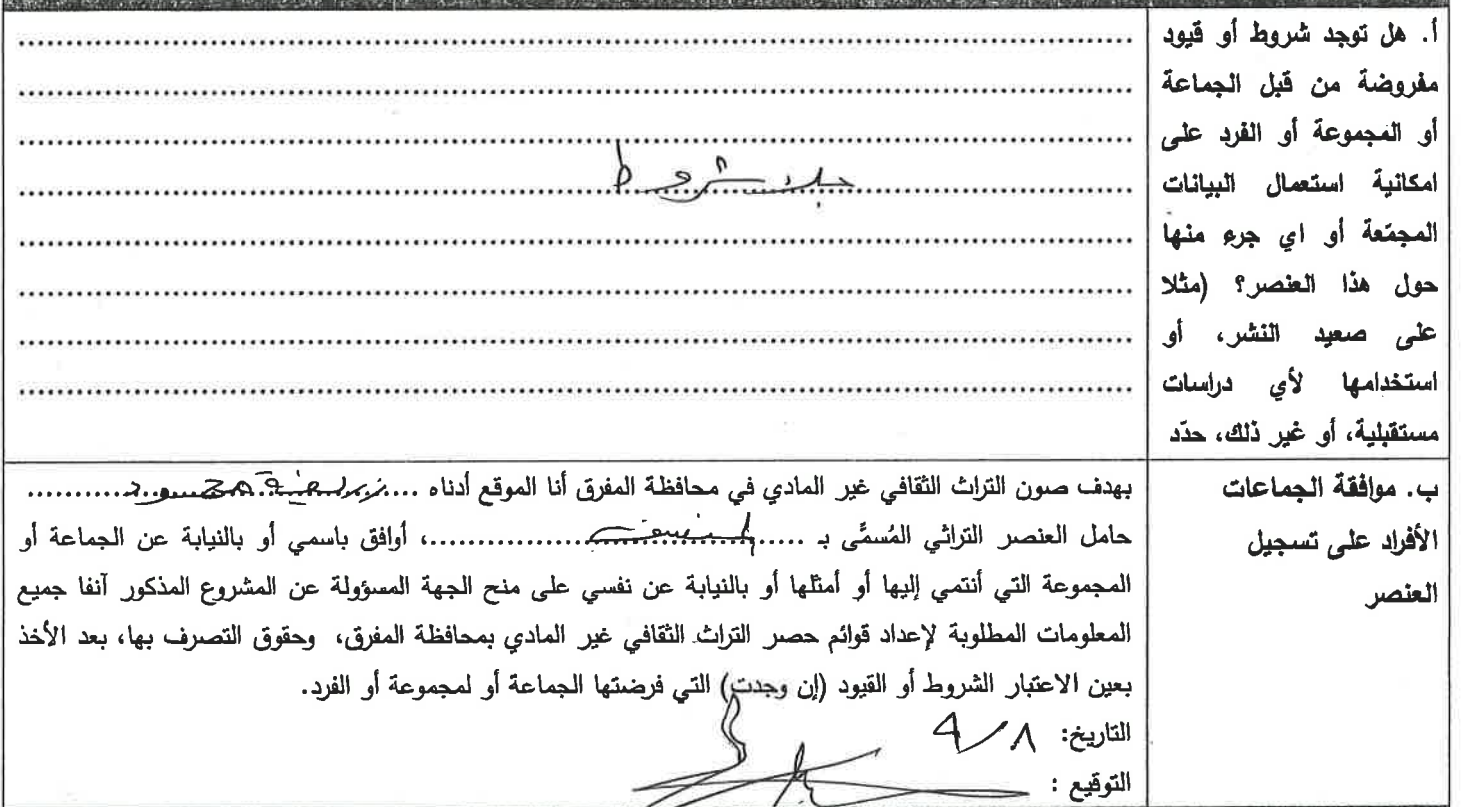 أ. هل توجد شروط أو قيود
مفروضة من قبل الجماعة
أو المجموعة أو الفرد على
امكانية استعمال البيانات
المجمّعة أو اي جرء منها
حول هذا العنصر؟ (مثلا
على صعيد النشر، أو
استخدامها لأي دراسات
مستقبلية، أو غير ذلك، حدّد
شروط
ب. موافقة الجماعات
الأفراد على تسجيل
العنصر
بهدف صون التراث الثقافي غير المادي في محافظة المفرق أنا الموقع أدناه ....................
حامل العنصر التراثي المُسمَّى بـ ....................، أوافق باسمي أو بالنيابة عن الجماعة أو
المجموعة التي أنتمي إليها أو أمثلها أو بالنيابة عن نفسي على منح الجهة المسؤولة عن المشروع المذكور آنفا جميع
المعلومات المطلوبة لإعداد قوائم حصر التراث الثقافي غير المادي بمحافظة المفرق، وحقوق التصرف بها، بعد الأخذ
بعين الاعتبار الشروط أو القيود (إن وجدت) التي فرضتها الجماعة أو لمجموعة أو الفرد.
التاريخ: ٨/٩
التوقيع :